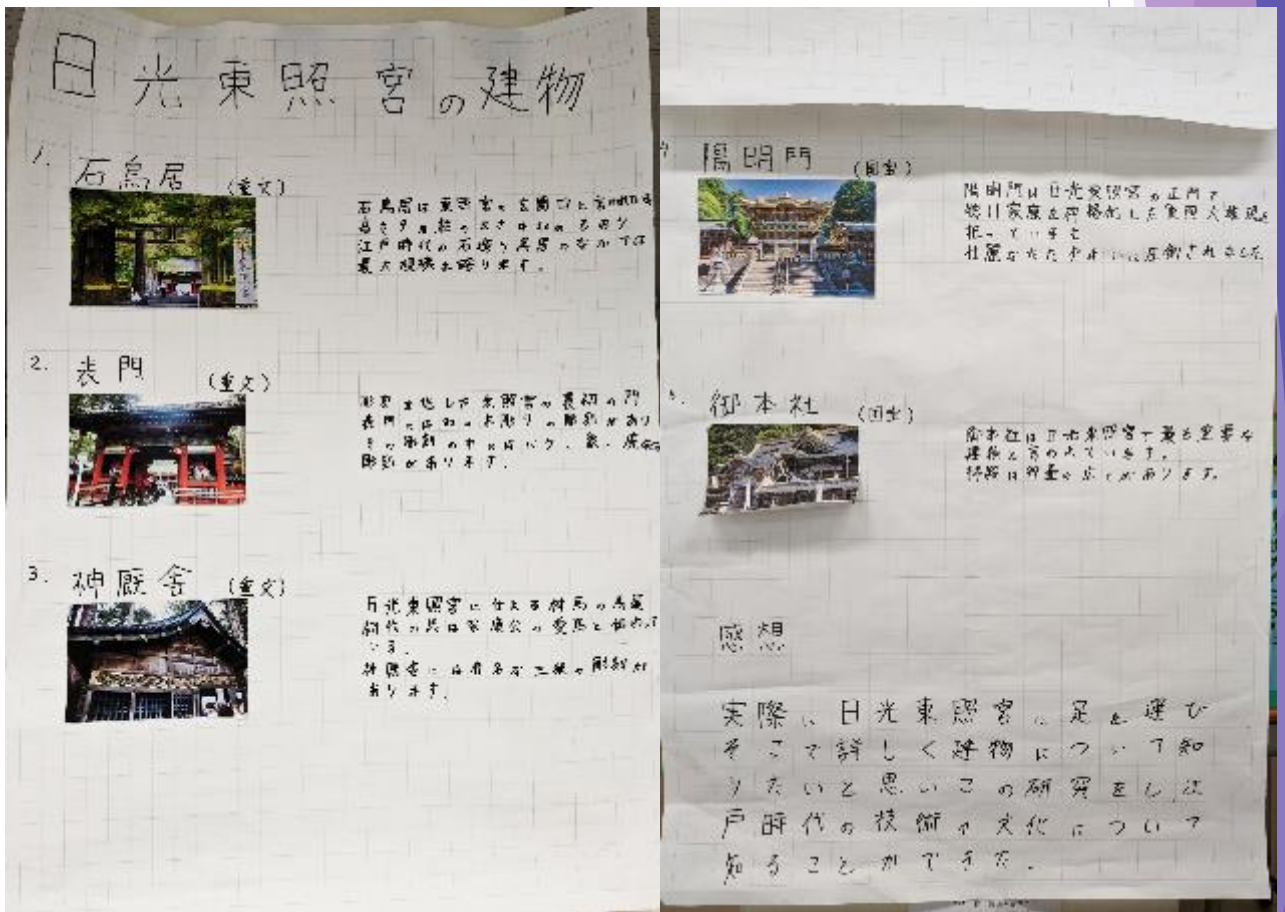 日光東照宮の建物
1. 石鳥居 (重文)
石鳥居は東照宮の玄関
江戸時代の石造り鳥居のなかでは
最大規模を誇ります。
2. 表門 (重文)
東照宮の最初の門
表門には の彫刻があり
その彫刻のなかには
彫刻があります。
3. 神厩舎 (重文)
日光東照宮に仕える神馬の馬屋
初代の馬は家康公の愛馬と伝わって
いる。
神厩舎には有名な三猿の彫刻が
あります。
陽明門 (国宝)
陽明門は日光東照宮の正門で
徳川家康を神格化した東照大権現を
祀っています
圧倒されました
御本社 (国宝)
御本社は日光東照宮で最も重要な
建物と言われています。
特徴は があります。
感想
実際に日光東照宮に足を運び
そこで詳しく建物について知
りたいと思いこの研究をし江
戸時代の技術や文化について
知ることができた.